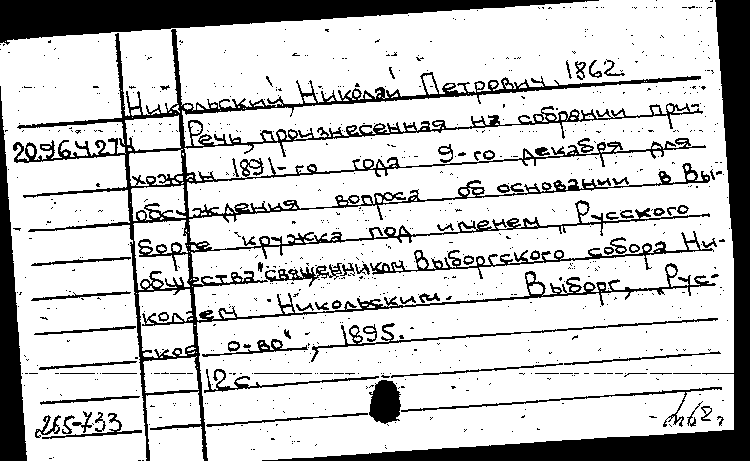 Никольский, Николай Петрович, 1862.
20.96.4.274 Речь, произнесенная на собрании при-
хожан 1891-го года 9-го декабря для
обсуждения вопроса об основании в Вы-
борге кружка под именем „Русского
общества" священником Выборгского собора Ни-
колаем Никольским. Выборг, „Рус-
ское о-во", 1895.
12 с.
265-733